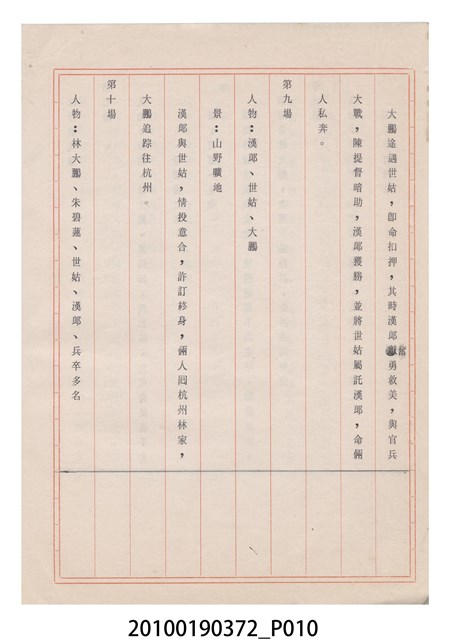 大鵬途遇世姑，即命扣押，其時漢郎奮勇救美，與官兵
大戰，陳提督暗助，漢郎獲勝，並將世姑屬託漢郎，命倆
人私奔。
第九場
人物：漢郎、世姑、大鵬
景：山野曠地
漢郎與世姑，情投意合，許訂終身，倆人囘杭州林家，
大鵬追踪往杭州。
第十場
人物：林大鵬、朱碧蓮、世姑、漢郎、兵卒多名
20100190372_P010